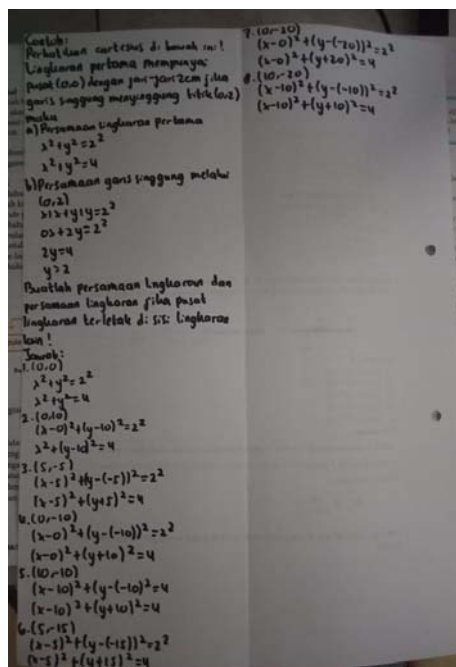 Contoh:
Perhatikan cartesius di bawah ini!
Lingkaran pertama mempunyai
pusat (0,0) dengan jari-jari 2cm jika
garis singgung menyinggung titik (0,2)
maka
a) Persamaan lingkaran pertama
x²+y²=2²
x²+y²=4
b) Persamaan garis singgung melalui
(0,2)
x1x+y1y=2²
0x+2y=2²
2y=4
y=2
Buatlah persamaan lingkaran dan
persamaan lingkaran jika pusat
lingkaran terletak di sisi lingkaran
lain!
Jawab:
1. (0,0)
x²+y²=2²
x²+y²=4
2. (0,10)
(x-0)²+(y-10)²=2²
x²+(y-10)²=4
3. (5,-5)
(x-5)²+(y-(-5))²=2²
(x-5)²+(y+5)²=4
4. (0,-10)
(x-0)²+(y-(-10))²=2²
(x-0)²+(y+10)²=4
5. (10,-10)
(x-10)²+(y-(-10)²=4
(x-10)²+(y+10)²=4
6. (5,-15)
(x-5)²+(y-(-15))²=2²
(x-5)²+(y+15)²=4
7. (0,-20)
(x-0)²+(y-(-20))²=2²
(x-0)²+(y+20)²=4
8. (10,-20)
(x-10)²+(y-(-10))²=2²
(x-10)²+(y+10)²=4